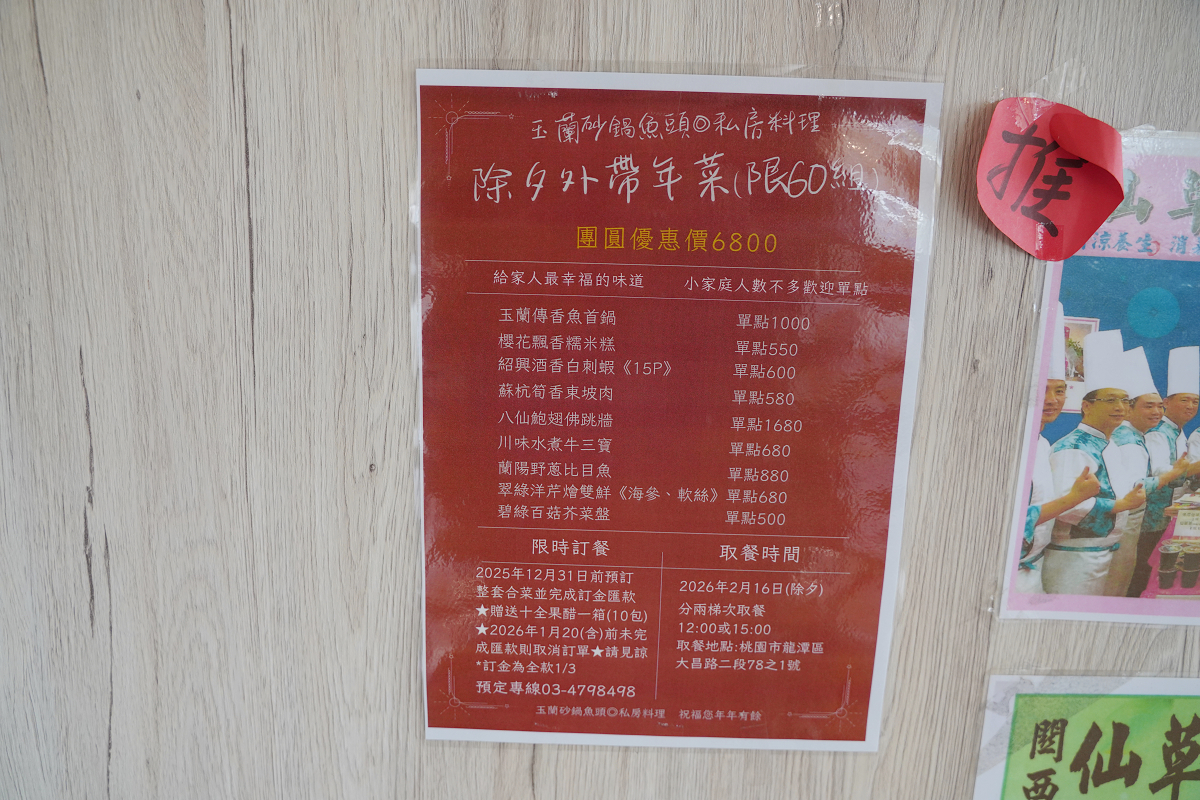 玉蘭砂鍋魚頭◎私房料理
除夕外帶年菜(限60組)
團圓優惠價6800
給家人最幸福的味道 小家庭人數不多歡迎單點
玉蘭傳香魚首鍋 單點1000
櫻花飄香糯米糕 單點550
紹興酒香白刺蝦《15P》 單點600
蘇杭筍香東坡肉 單點580
八仙鮑翅佛跳牆 單點1680
川味水煮牛三寶 單點680
蘭陽野蔥比目魚 單點880
翠綠洋芹燴雙鮮《海參、軟絲》 單點680
碧綠百菇芥菜盤 單點500
限時訂餐
2025年12月31日前預訂
整套合菜並完成訂金匯款
★贈送十全果醋一箱(10包)
★2026年1月20(含)前未完
成匯款則取消訂單★請見諒
*訂金為全款1/3
預定專線03-4798498
取餐時間
2026年2月16日(除夕)
分兩梯次取餐
12:00或15:00
取餐地點:桃園市龍潭區
大昌路二段78之1號
玉蘭砂鍋魚頭◎私房料理 祝福您年年有餘
推
仙草
涼養生 消
關西
仙草